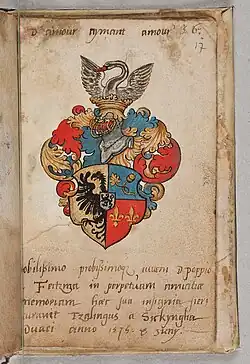 D'amour aymant amour 36.
17
obilissimo probissimoq3 iuueni D. Poppio
Feitzma in perpetuam amicitiæ
memoriam hæc sua insignia fieri
curauit Tzalingus a Sirkzma
Duaci anno 1575.